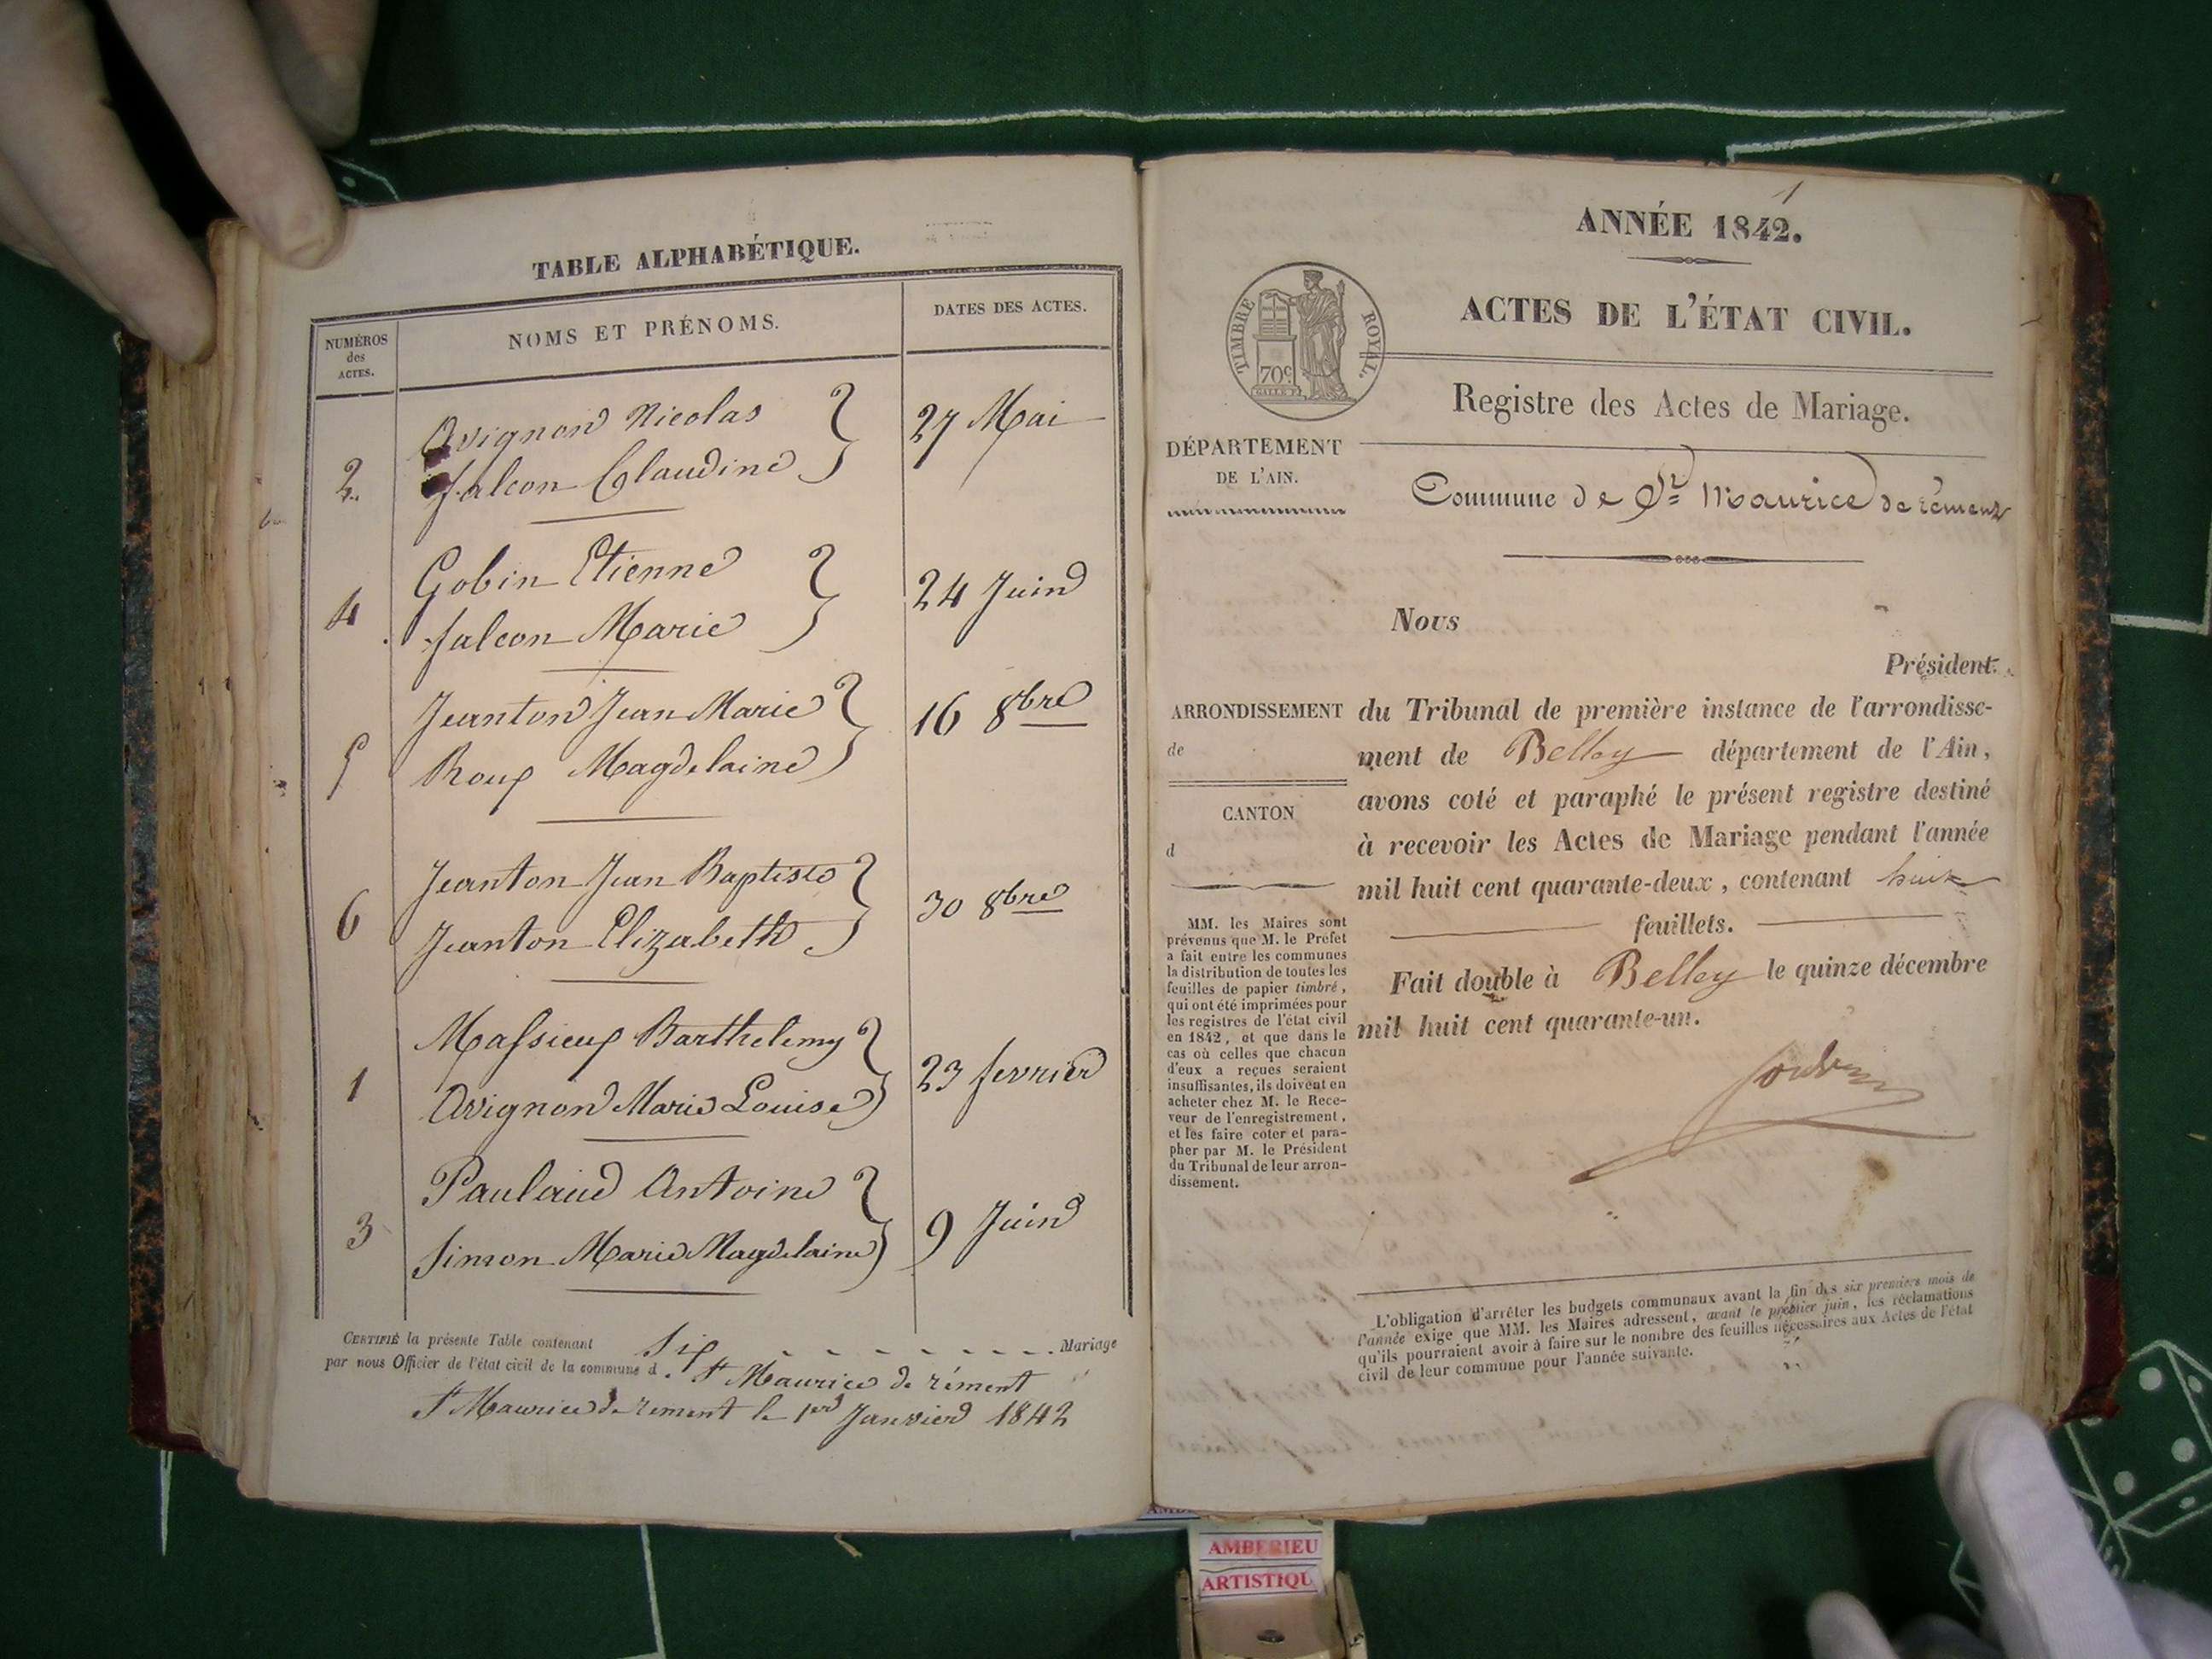 TABLE ALPHABÉTIQUE.
NUMÉROS
des
ACTES.
NOMS ET PRÉNOMS.
DATES DES ACTES.
2. Avignon Nicolas 27 Mai
falcon Claudine
4 Gobin Etienne 24 Juin
falcon Marie
5 Jeanton Jean Marie 16 8bre
Roux Magdelaine
6 Jeanton Jean Baptiste 30 8bre
Jeanton Elizabeth
1 Massieux Barthelemy 23 fevrier
Avignon Marie Louise
3 Paulaud Antoine 9 Juin
Simon Marie Magdelaine
CERTIFIÉ la présente Table contenant Six Mariage
par nous Officier de l'état civil de la commune d. St Maurice de rément
St Maurice de rement le 1er Janvier 1842
1
ANNÉE 1842.
ACTES DE L'ÉTAT CIVIL.
TIMBRE ROYAL.
70c
Registre des Actes de Mariage.
DÉPARTEMENT
DE L'AIN.
Commune de St Maurice de rémens
Nous
Président
ARRONDISSEMENT
de
CANTON
d
du Tribunal de première instance de l'arrondisse-
ment de Belley département de l'Ain,
avons coté et paraphé le présent registre destiné
à recevoir les Actes de Mariage pendant l'année
mil huit cent quarante-deux, contenant huit
feuillets.
Fait double à Belley le quinze décembre
mil huit cent quarante-un.
MM. les Maires sont
prévenus que M. le Préfet
a fait entre les communes
la distribution de toutes les
feuilles de papier timbré,
qui ont été imprimées pour
les registres de l'état civil
en 1842, et que dans le
cas où celles que chacun
d'eux a reçues seraient
insuffisantes, ils doivent en
acheter chez M. le Rece-
veur de l'enregistrement,
et les faire coter et para-
pher par M. le Président
du Tribunal de leur arron-
dissement.
L'obligation d'arrêter les budgets communaux avant la fin des six premiers mois de
l'année exige que MM. les Maires adressent, avant le premier juin, les réclamations
qu'ils pourraient avoir à faire sur le nombre des feuilles nécessaires aux Actes de l'état
civil de leur commune pour l'année suivante.
AMBERIEU
ARTISTIQU